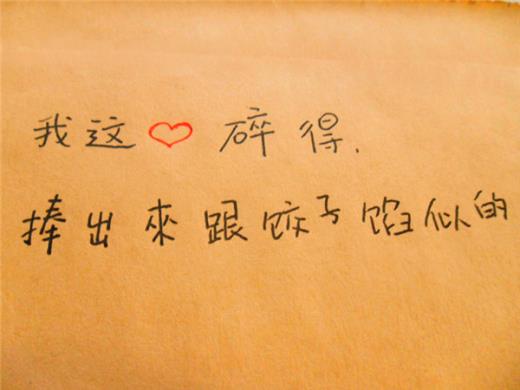 我这❤碎得.
捧出來跟饺子馅似的